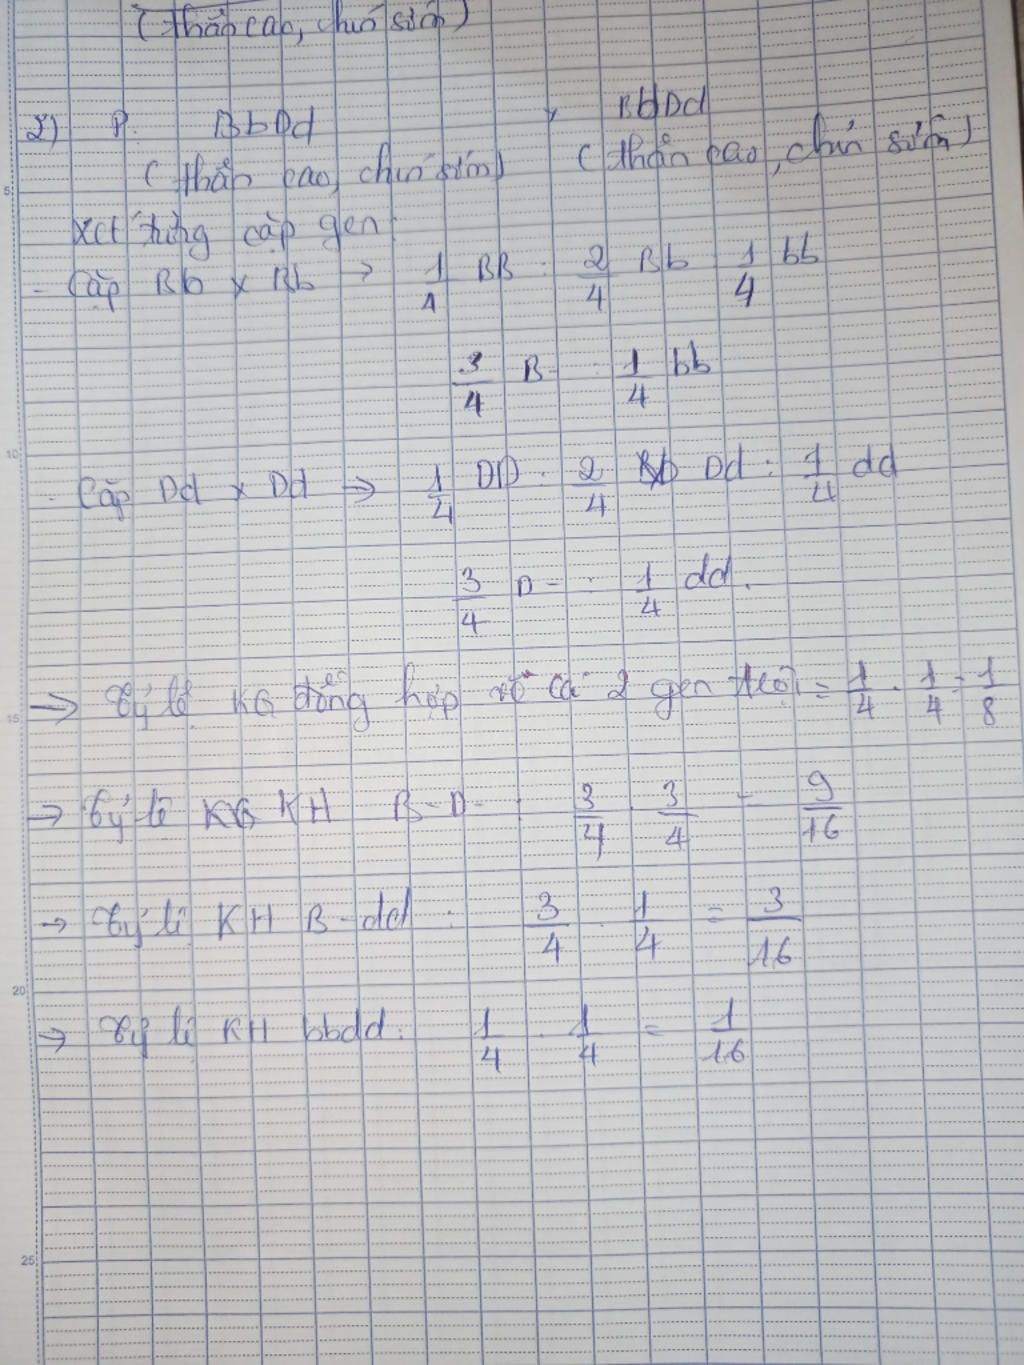 (thân cao, chín sớm)
2) P. BbDd × BbDd
(thân cao, chín sớm) (thân cao, chín sớm)
Xét từng cặp gen
- Cặp Bb × Bb → 1/4 BB : 2/4 Bb 1/4 bb
3/4 B- : 1/4 bb
- Cặp Dd × Dd → 1/4 DD : 2/4 Dd : 1/4 dd
3/4 D- : 1/4 dd.
=> Tỷ lệ KG đồng hợp về cả 2 gen trội = 1/4 . 1/4 = 1/8
→ Tỷ lệ KH B-D- 3/4 . 3/4 = 9/16
→ Tỷ lệ KH B-dd : 3/4 . 1/4 = 3/16
→ Tỷ lệ KH bbdd: 1/4 . 1/4 = 1/16
5
10
15
20
25